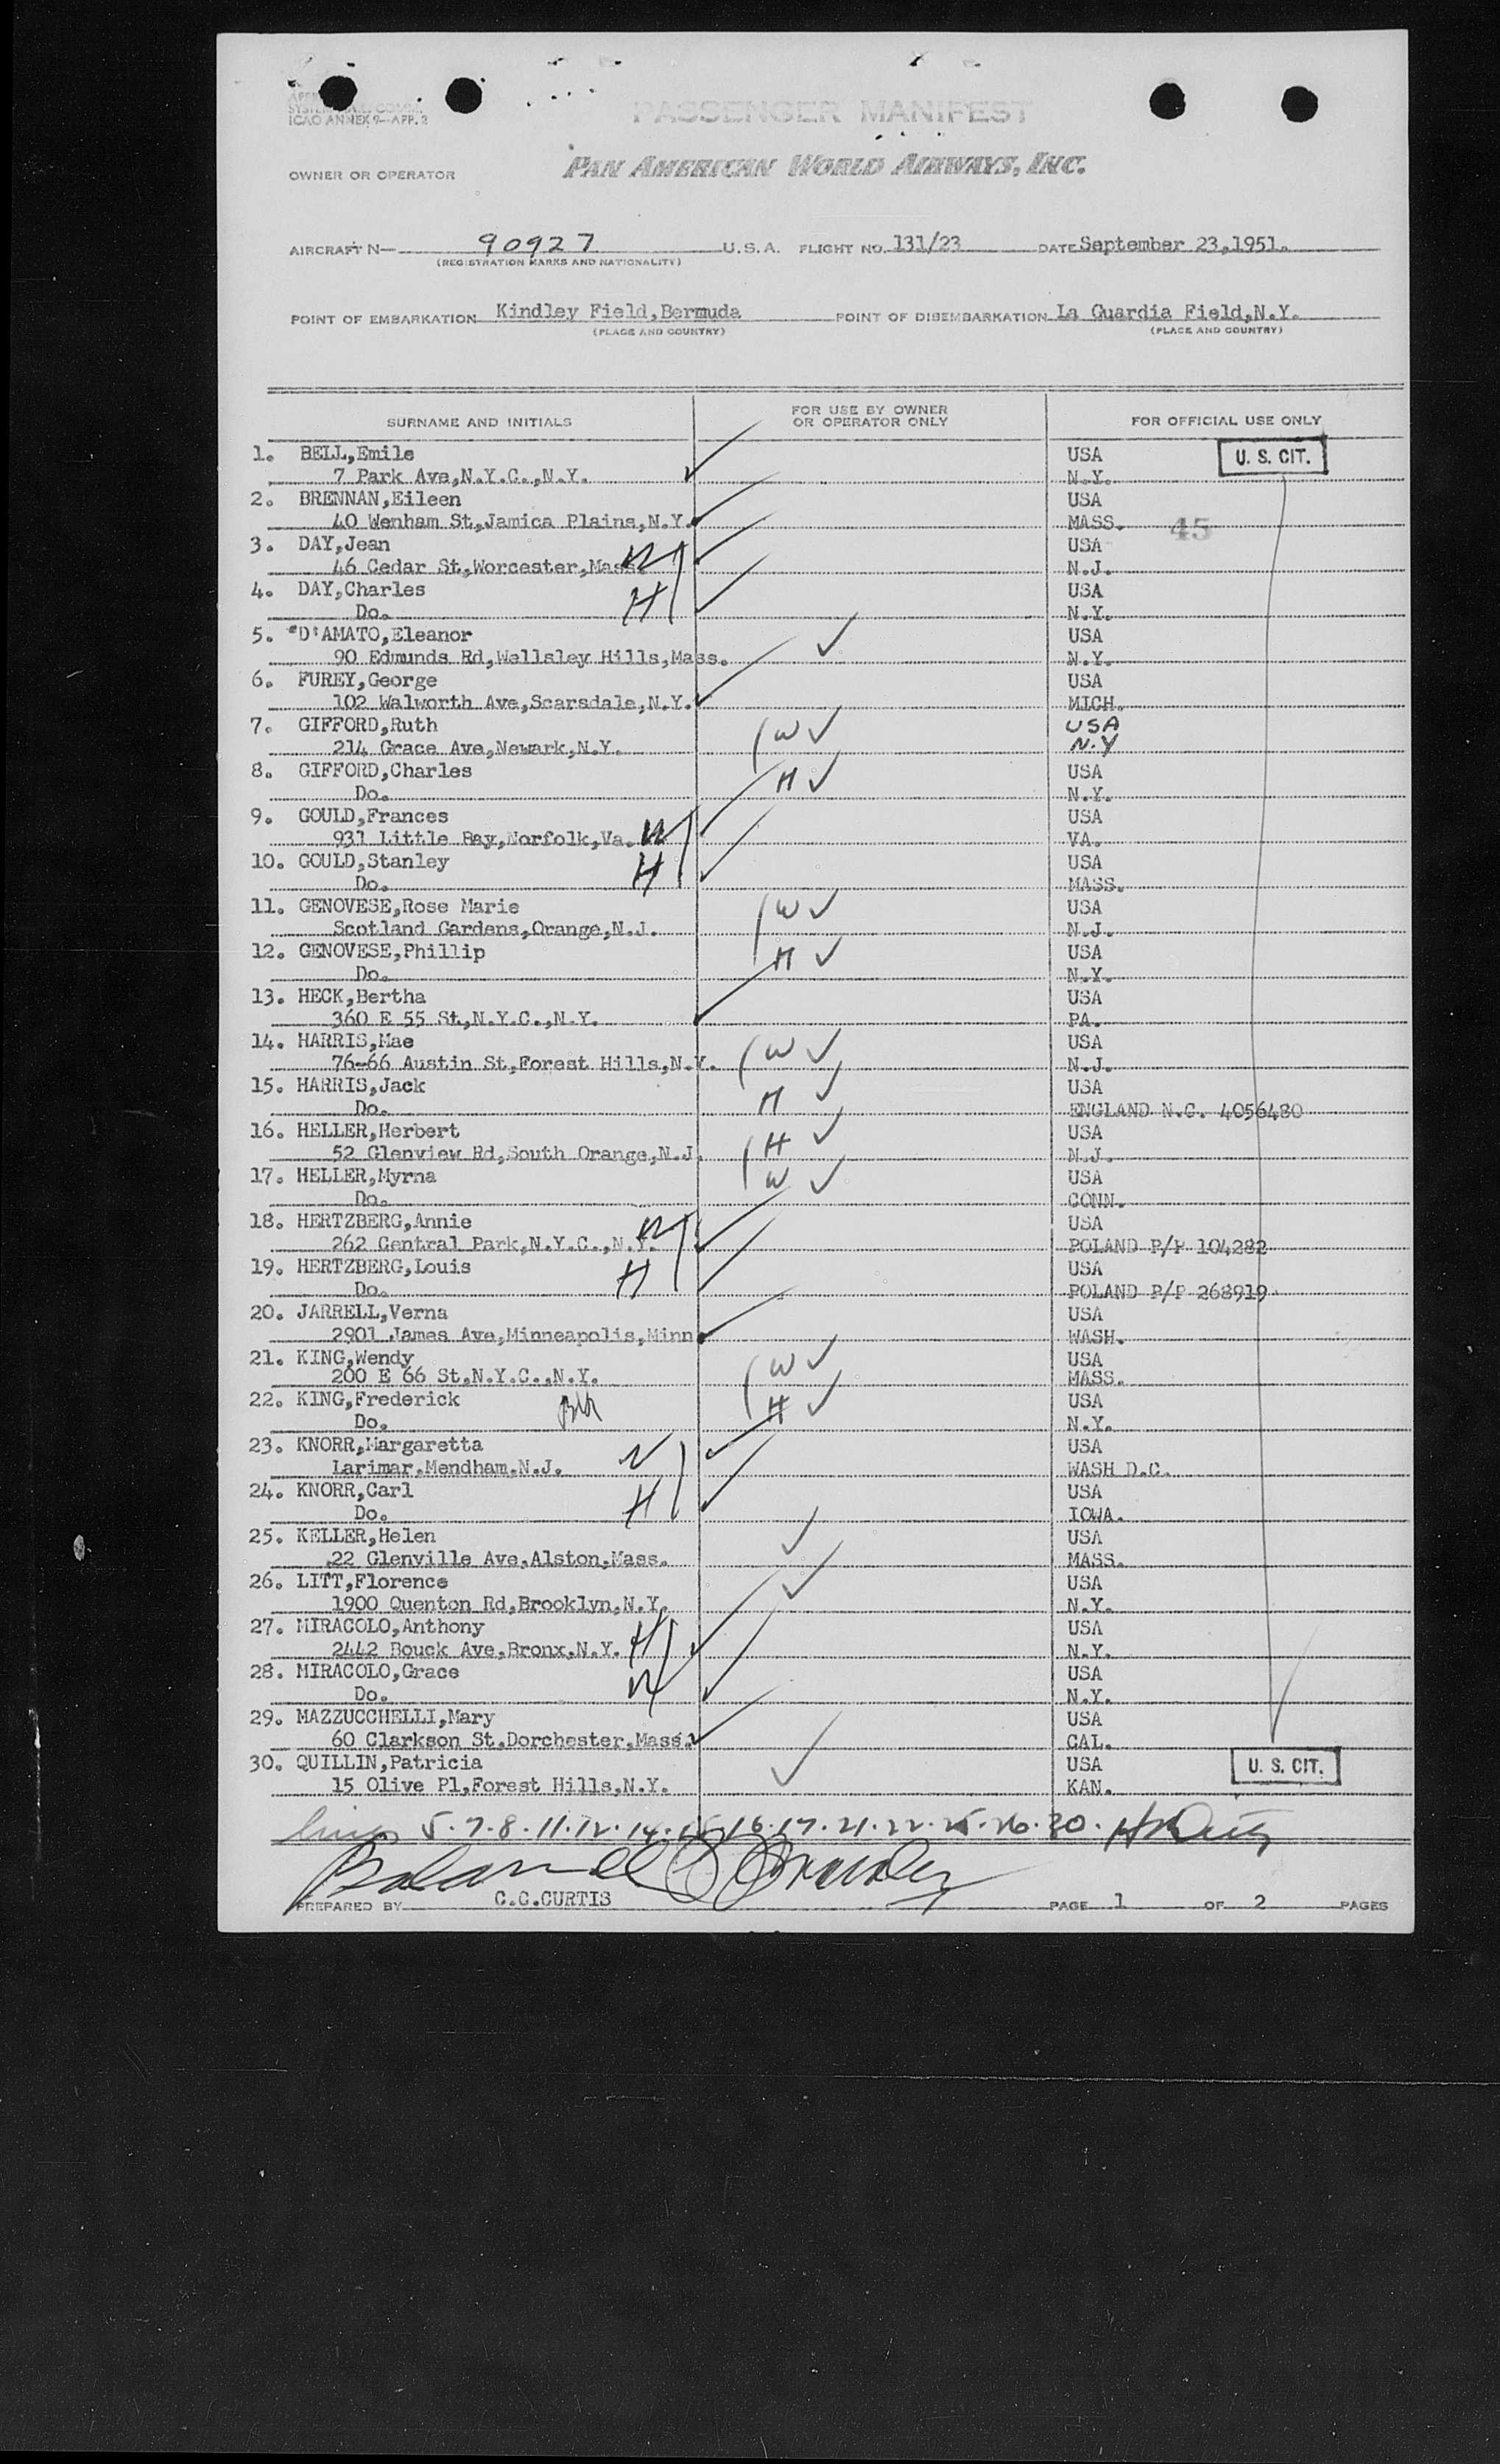 ICAO ANNEX 9—APP. 2
PASSENGER MANIFEST
OWNER OR OPERATOR PAN AMERICAN WORLD AIRWAYS, INC.
AIRCRAFT N— 90927 U.S.A. FLIGHT NO. 131/23 DATE September 23,1951.
(REGISTRATION MARKS AND NATIONALITY)
POINT OF EMBARKATION Kindley Field,Bermuda POINT OF DISEMBARKATION La Guardia Field,N.Y.
(PLACE AND COUNTRY) (PLACE AND COUNTRY)
SURNAME AND INITIALS FOR USE BY OWNER OR OPERATOR ONLY FOR OFFICIAL USE ONLY
1. BELL,Emile USA U. S. CIT.
7 Park Ave,N.Y.C.,N.Y. N.Y.
2. BRENNAN,Eileen USA
40 Wenham St,Jamica Plains,N.Y. MASS. 45
3. DAY,Jean USA
46 Cedar St,Worcester,Mass. W N.J.
4. DAY,Charles USA
Do. H N.Y.
5. D'AMATO,Eleanor USA
90 Edmunds Rd,Wellsley Hills,Mass. N.Y.
6. FUREY,George USA
102 Walworth Ave,Scarsdale,N.Y. MICH.
7. GIFFORD,Ruth W USA
214 Grace Ave,Newark,N.Y. N.Y
8. GIFFORD,Charles H USA
Do. N.Y.
9. GOULD,Frances USA
931 Little Bay,Norfolk,Va. W VA.
10. GOULD,Stanley H USA
Do. MASS.
11. GENOVESE,Rose Marie W USA
Scotland Gardens,Orange,N.J. N.J.
12. GENOVESE,Phillip H USA
Do. N.Y.
13. HECK,Bertha USA
360 E 55 St,N.Y.C.,N.Y. PA.
14. HARRIS,Mae W USA
76-66 Austin St,Forest Hills,N.Y. N.J.
15. HARRIS,Jack H USA
Do. ENGLAND N.C. 4056480
16. HELLER,Herbert H USA
52 Glenview Rd,South Orange,N.J. N.J.
17. HELLER,Myrna W USA
Do. CONN.
18. HERTZBERG,Annie W USA
262 Central Park,N.Y.C.,N.Y. POLAND P/P 104282
19. HERTZBERG,Louis H USA
Do. POLAND P/P 268919
20. JARRELL,Verna USA
2901 James Ave,Minneapolis,Minn WASH.
21. KING,Wendy W USA
200 E 66 St,N.Y.C.,N.Y. MASS.
22. KING,Frederick H USA
Do. N.Y.
23. KNORR,Margaretta W USA
Larimar,Mendham,N.J. WASH D.C.
24. KNORR,Carl H USA
Do. IOWA.
25. KELLER,Helen USA
22 Glenville Ave,Alston,Mass. MASS.
26. LITT,Florence USA
1900 Quenton Rd,Brooklyn,N.Y. N.Y.
27. MIRACOLO,Anthony H USA
2442 Bouck Ave,Bronx,N.Y. N.Y.
28. MIRACOLO,Grace W USA
Do. N.Y.
29. MAZZUCCHELLI,Mary USA
60 Clarkson St,Dorchester,Mass. CAL.
30. QUILLIN,Patricia USA U. S. CIT.
15 Olive Pl,Forest Hills,N.Y. KAN.
lines 5.7.8.11.12.14.15 16.17.21.22.25.26.30.
PREPARED BY C.C.CURTIS PAGE 1 OF 2 PAGES